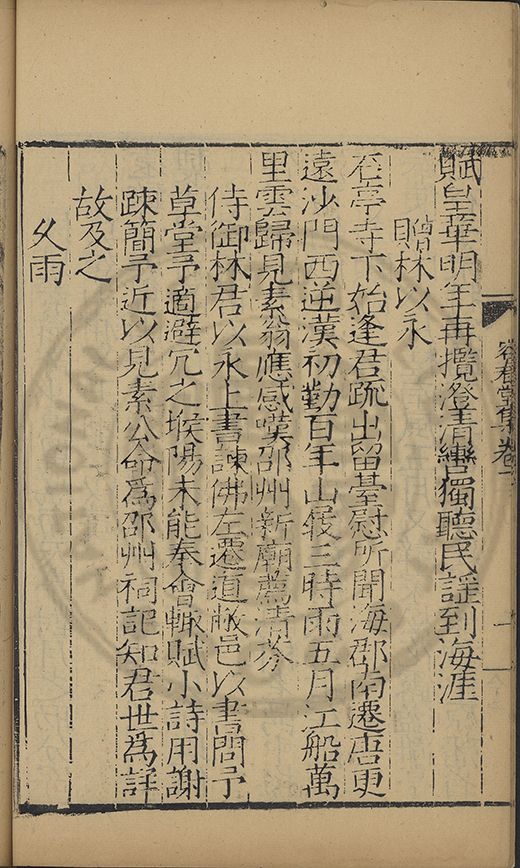 賦皇華明年再攬澄清轡獨聽民謡到海涯
贈林以永
石亭寺下始逢君疏出留臺慰所聞海郡南遷唐更
遠沙門西逆漢初勤百年山屐三時雨五月江船萬
里雲歸見素翁應感嘆邵州新廟薦清芬
侍御林君以永上書諫佛左遷道敝邑以書問予
草堂予適避冗之堠陽未能奉會輙賦小詩用謝
疎簡予近以見素公命為邵州祠記知君世為詳
故及之
久雨
容春堂集卷